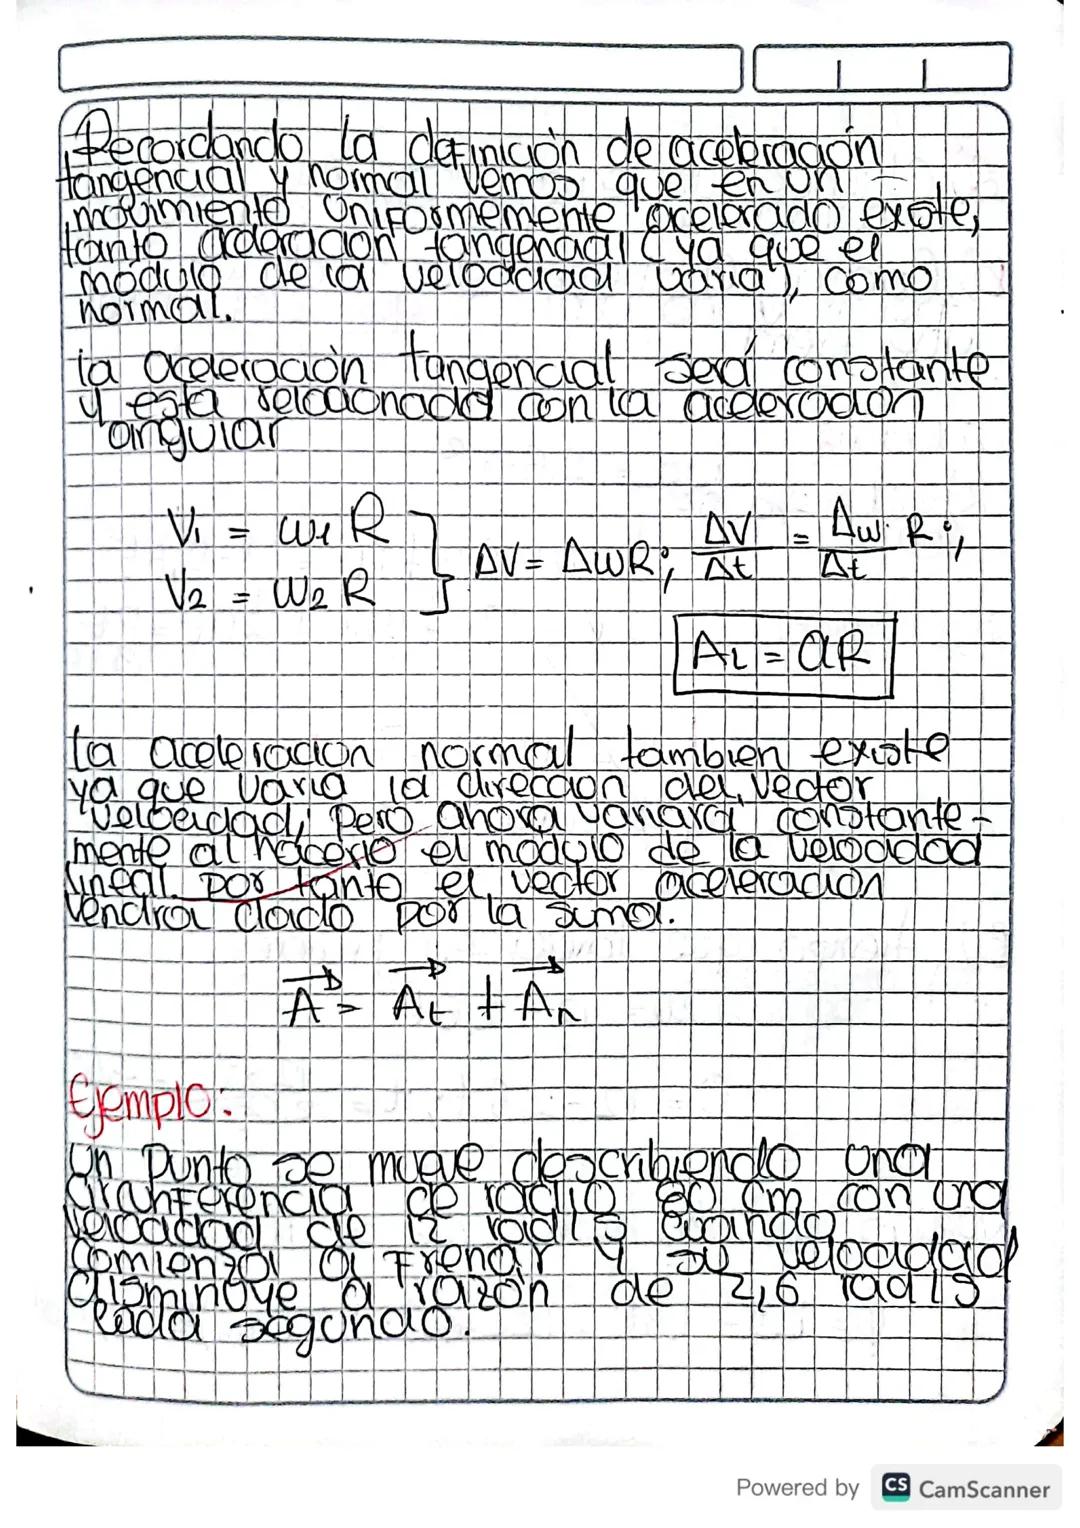 Recordando la definición de aceleración
tangencial y normal vemos que en un
movimiento uniformemente acelerado existe,
tanto aceleracion tangencial (ya que el
módulo de la velocidad varia), como
normal.
la aceleración tangencial será constante
y esta relacionada con la aceleración
angular
V₁ = ω₁ R
V₂ = ω₂ R } ΔV = ΔωR; ΔV/Δt = Δω/Δt R;
AL = αR
La aceleracion normal tambien existe
ya que varia la direccion del vector
velocidad, pero ahora variara constante-
mente al hacerlo el modulo de la velocidad
lineal. por tanto el vector aceleración
vendra dado por la suma.
A = At + An
Ejemplo:
Un punto se mueve describiendo una
circunferencia de radio 80 cm con una
velocidad de 12 rad/s cuando
comienza a frenar y su velocidad
disminuye a razón de 2,6 rad/s
cada segundo.
Powered by CS CamScanner